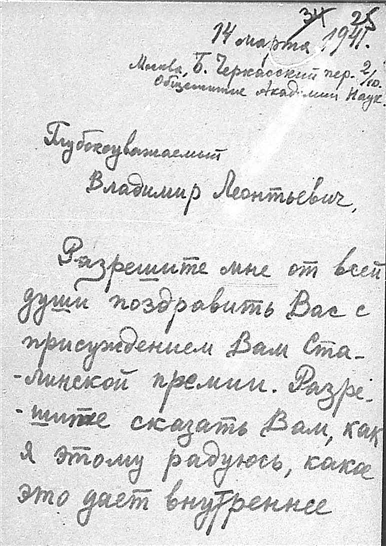 34 25
14 марта 1941.
Москва, Б. Черкасский пер. 2/10.
Общежитие Академии Наук
Глубокоуважаемый
Владимир Леонтьевич,
Разрешите мне от всей
души поздравить Вас с
присуждением Вам Ста-
-линской премии. Разре-
-шите сказать Вам, как
я этому радуюсь, какое
это дает внутреннее